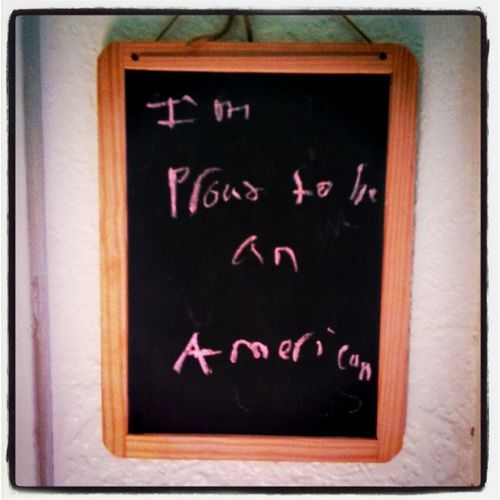 I'm
Proud to be
an
American